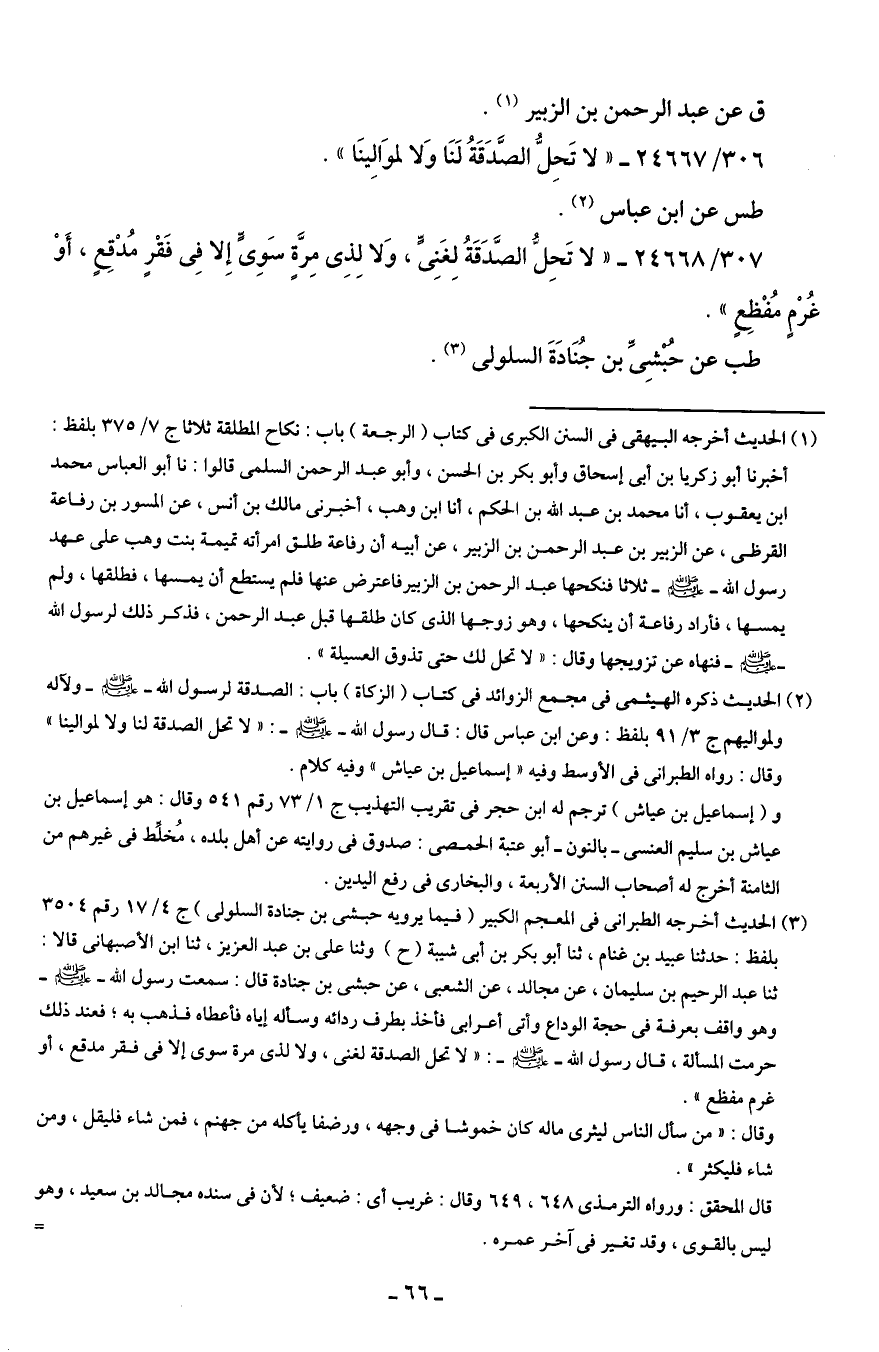 ق عن عبد الرحمن بن الزبير (١) .
٣٠٦/ ٢٤٦٦٧ ـ « لا تَحِلُّ الصَّدَقَةُ لَنَا وَلا لموَالِينَا » .
طس عن ابن عباس (٢) .
٣٠٧/ ٢٤٦٦٨ ـ « لا تَحِلُّ الصَّدَقَةُ لِغَنِىٍّ ، وَلا لِذِى مِرَّةٍ سَوِىٍّ إِلا فِى فَقْرٍ مُدْقِعٍ ، أَوْ
غُرْمٍ مُفْظِعٍ » .
طب عن حُبْشِىِّ بن جُنَادَةَ السلولى (٣) .
(١) الحديث أخرجه البيهقى فى السنن الكبرى فى كتاب ( الرجعة ) باب : نكاح المطلقة ثلاثا ج ٧/ ٣٧٥ بلفظ :
أخبرنا أبو زكريا بن أبى إسحاق وأبو بكر بن الحسن ، وأبو عبد الرحمن السلمى قالوا : نا أبو العباس محمد
ابن يعقوب ، أنا محمد بن عبد الله بن الحكم ، أنا ابن وهب ، أخبرنى مالك بن أنس ، عن المسور بن رفاعة
القرظى ، عن الزبير بن عبد الرحمن بن الزبير ، عن أبيه أن رفاعة طلق امرأته تميمة بنت وهب على عهد
رسول الله ـ ﷺ ـ ثلاثا فنكحها عبد الرحمن بن الزبير فاعترض عنها فلم يستطع أن يمسها ، فطلقها ، ولم
يمسها ، فأراد رفاعة أن ينكحها ، وهو زوجها الذى كان طلقها قبل عبد الرحمن ، فذكر ذلك لرسول الله
ـ ﷺ ـ فنهاه عن تزويجها وقال : « لا تحل لك حتى تذوق العسيلة » .
(٢) الحديث ذكره الهيثمى فى مجمع الزوائد فى كتاب ( الزكاة ) باب : الصدقة لرسول الله ـ ﷺ ـ ولآله
ولمواليهم ج ٣/ ٩١ بلفظ : وعن ابن عباس قال : قال رسول الله ـ ﷺ ـ : « لا تحل الصدقة لنا ولا لموالينا »
وقال : رواه الطبرانى فى الأوسط وفيه « إسماعيل بن عياش » وفيه كلام .
و ( إسماعيل بن عياش ) ترجم له ابن حجر فى تقريب التهذيب ج ١/ ٧٣ رقم ٥٤١ وقال : هو إسماعيل بن
عياش بن سليم العنسى ـ بالنون ـ أبو عتبة الحمصى : صدوق فى روايته عن أهل بلده ، مُخلِّط فى غيرهم من
الثامنة أخرج له أصحاب السنن الأربعة ، والبخارى فى رفع اليدين .
(٣) الحديث أخرجه الطبرانى فى المعجم الكبير ( فيما يرويه حبشى بن جنادة السلولى ) ج ٤/ ١٧ رقم ٣٥٠٤
بلفظ : حدثنا عبيد بن غنام ، ثنا أبو بكر بن أبى شيبة ( ح ) وثنا على بن عبد العزيز ، ثنا ابن الأصبهانى قالا :
ثنا عبد الرحيم بن سليمان ، عن مجالد ، عن الشعبى ، عن حبشى بن جنادة قال : سمعت رسول الله ـ ﷺ ـ
وهو واقف بعرفة فى حجة الوداع وأتى أعرابى فأخذ بطرف ردائه وسأله إياه فأعطاه فذهب به ؛ فعند ذلك
حرمت المسألة ، قال رسول الله ـ ﷺ ـ : « لا تحل الصدقة لغنى ، ولا لذى مرة سوى إلا فى فقر مدقع ، أو
غرم مفظع » .
وقال : « من سأل الناس ليثرى ماله كان خموشا فى وجهه ، ورضفا يأكله من جهنم ، فمن شاء فليقل ، ومن
شاء فليكثر » .
قال المحقق : ورواه الترمذى ٦٤٨ ، ٦٤٩ وقال : غريب أى : ضعيف ؛ لأن فى سنده مجالد بن سعيد ، وهو
ليس بالقوى ، وقد تغير فى آخر عمره .
=
ـ ٦٦ ـ